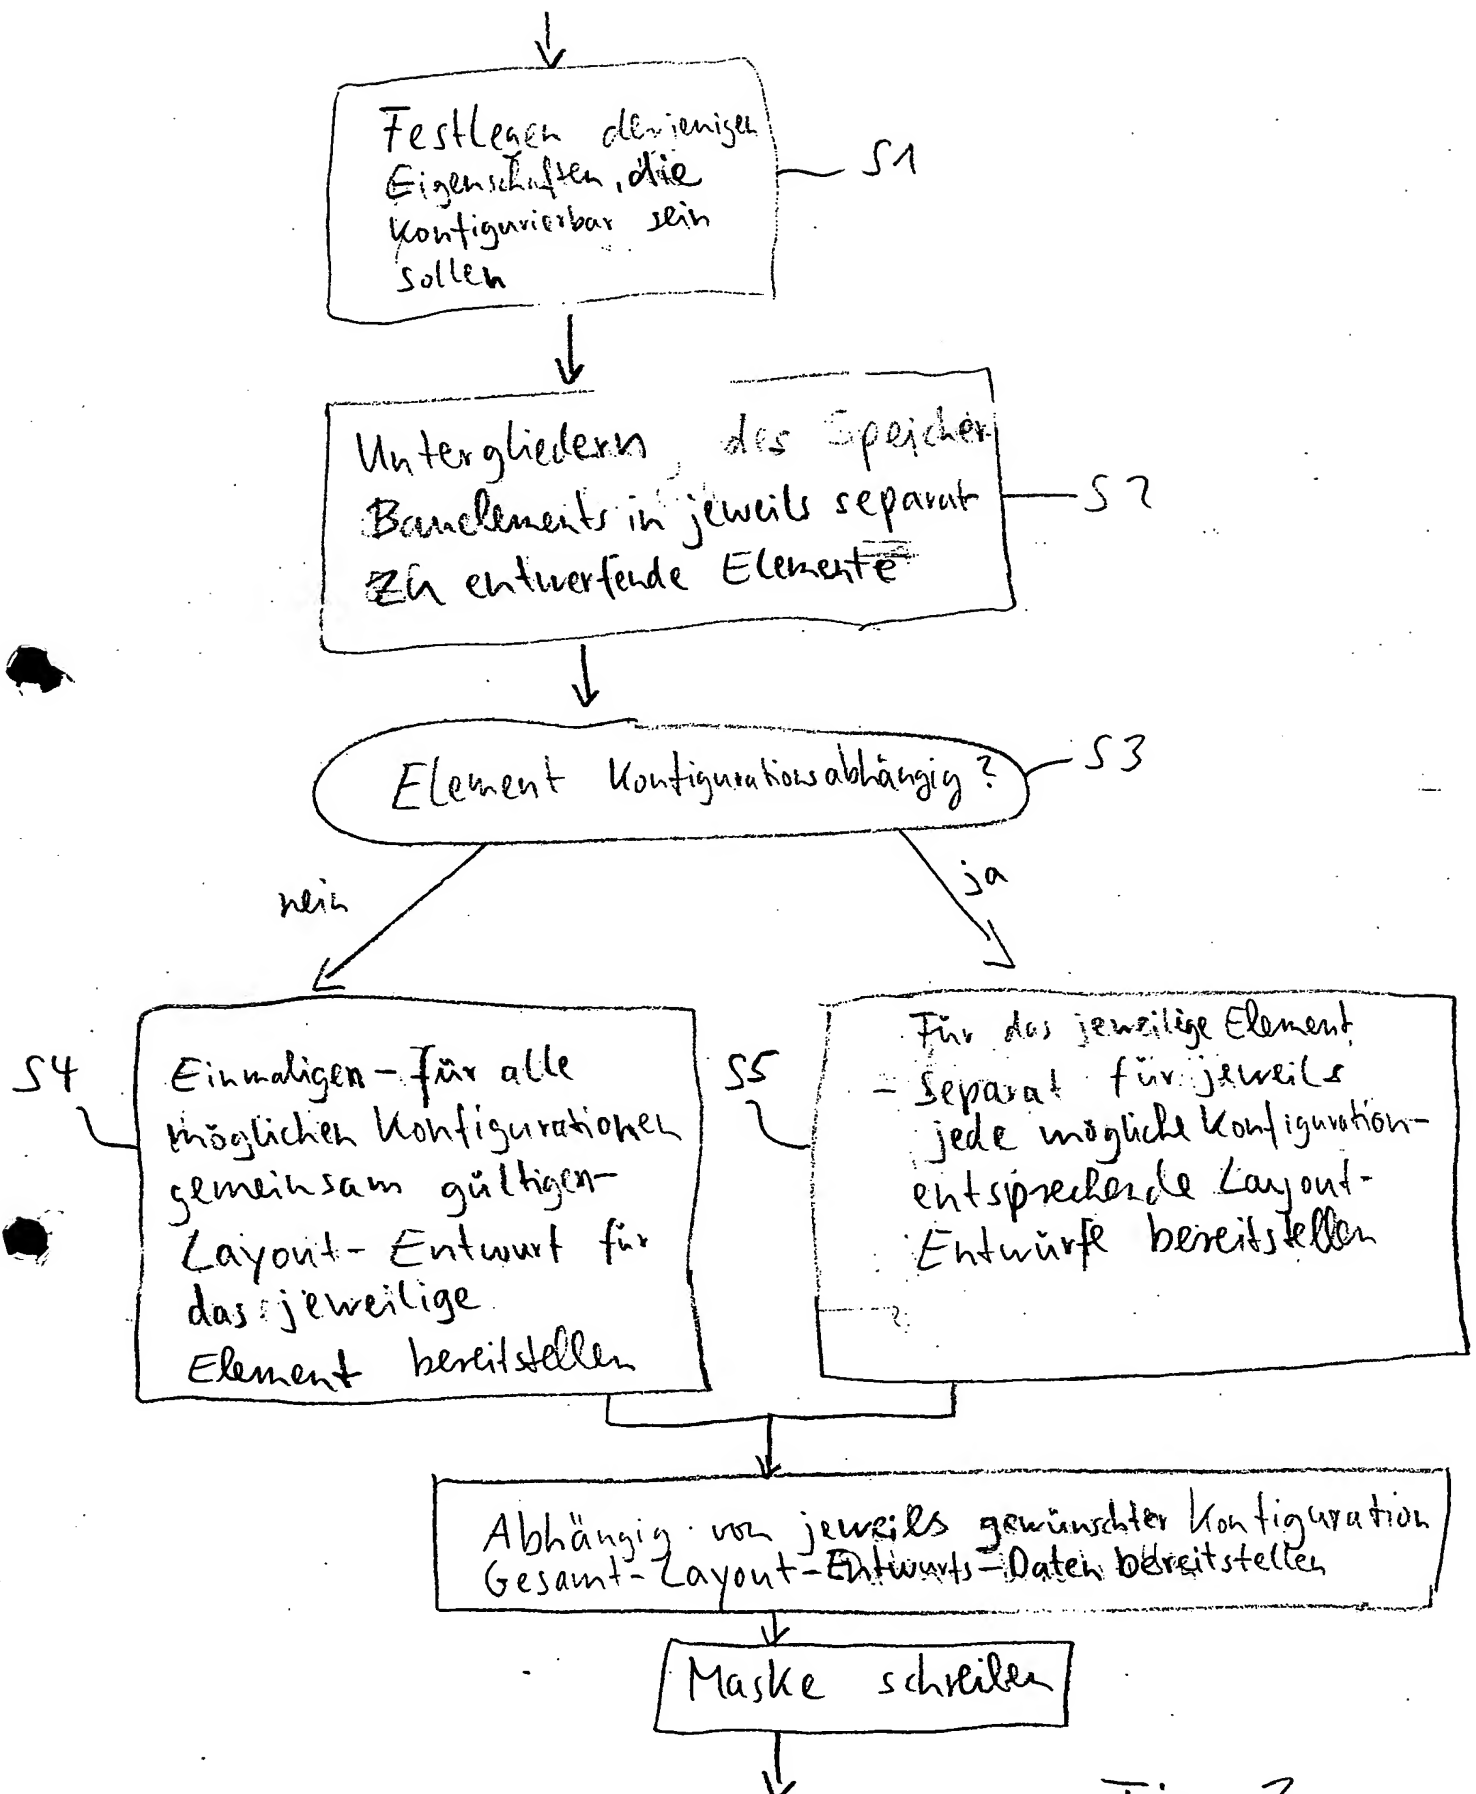 Festlegen derjenigen
Eigenschaften, die
konfigurierbar sein
sollen
S1
Untergliedern des Speicher
Bauelements in jeweils separat
zu entwerfende Elemente
S2
Element Konfigurationsabhängig?
S3
nein
ja
S4
Einmaligen - für alle
möglichen Konfigurationen
gemeinsam gültigen -
Layout-Entwurf für
das jeweilige
Element bereitstellen
S5
Für das jeweilige Element
- separat für jeweils
jede mögliche Konfiguration -
entsprechende Layout-
Entwürfe bereitstellen
Abhängig von jeweils gewünschter Konfiguration
Gesamt-Layout-Entwurfs-Daten bereitstellen
Maske schreiben